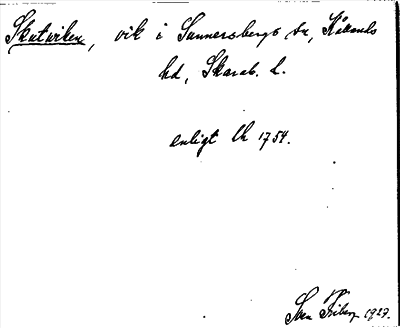 Skutviken, vik i Sunnersbergs sn, Kållands
hd, Skarab. l.
enligt Uk 1754.
Sven Friberg 1927.